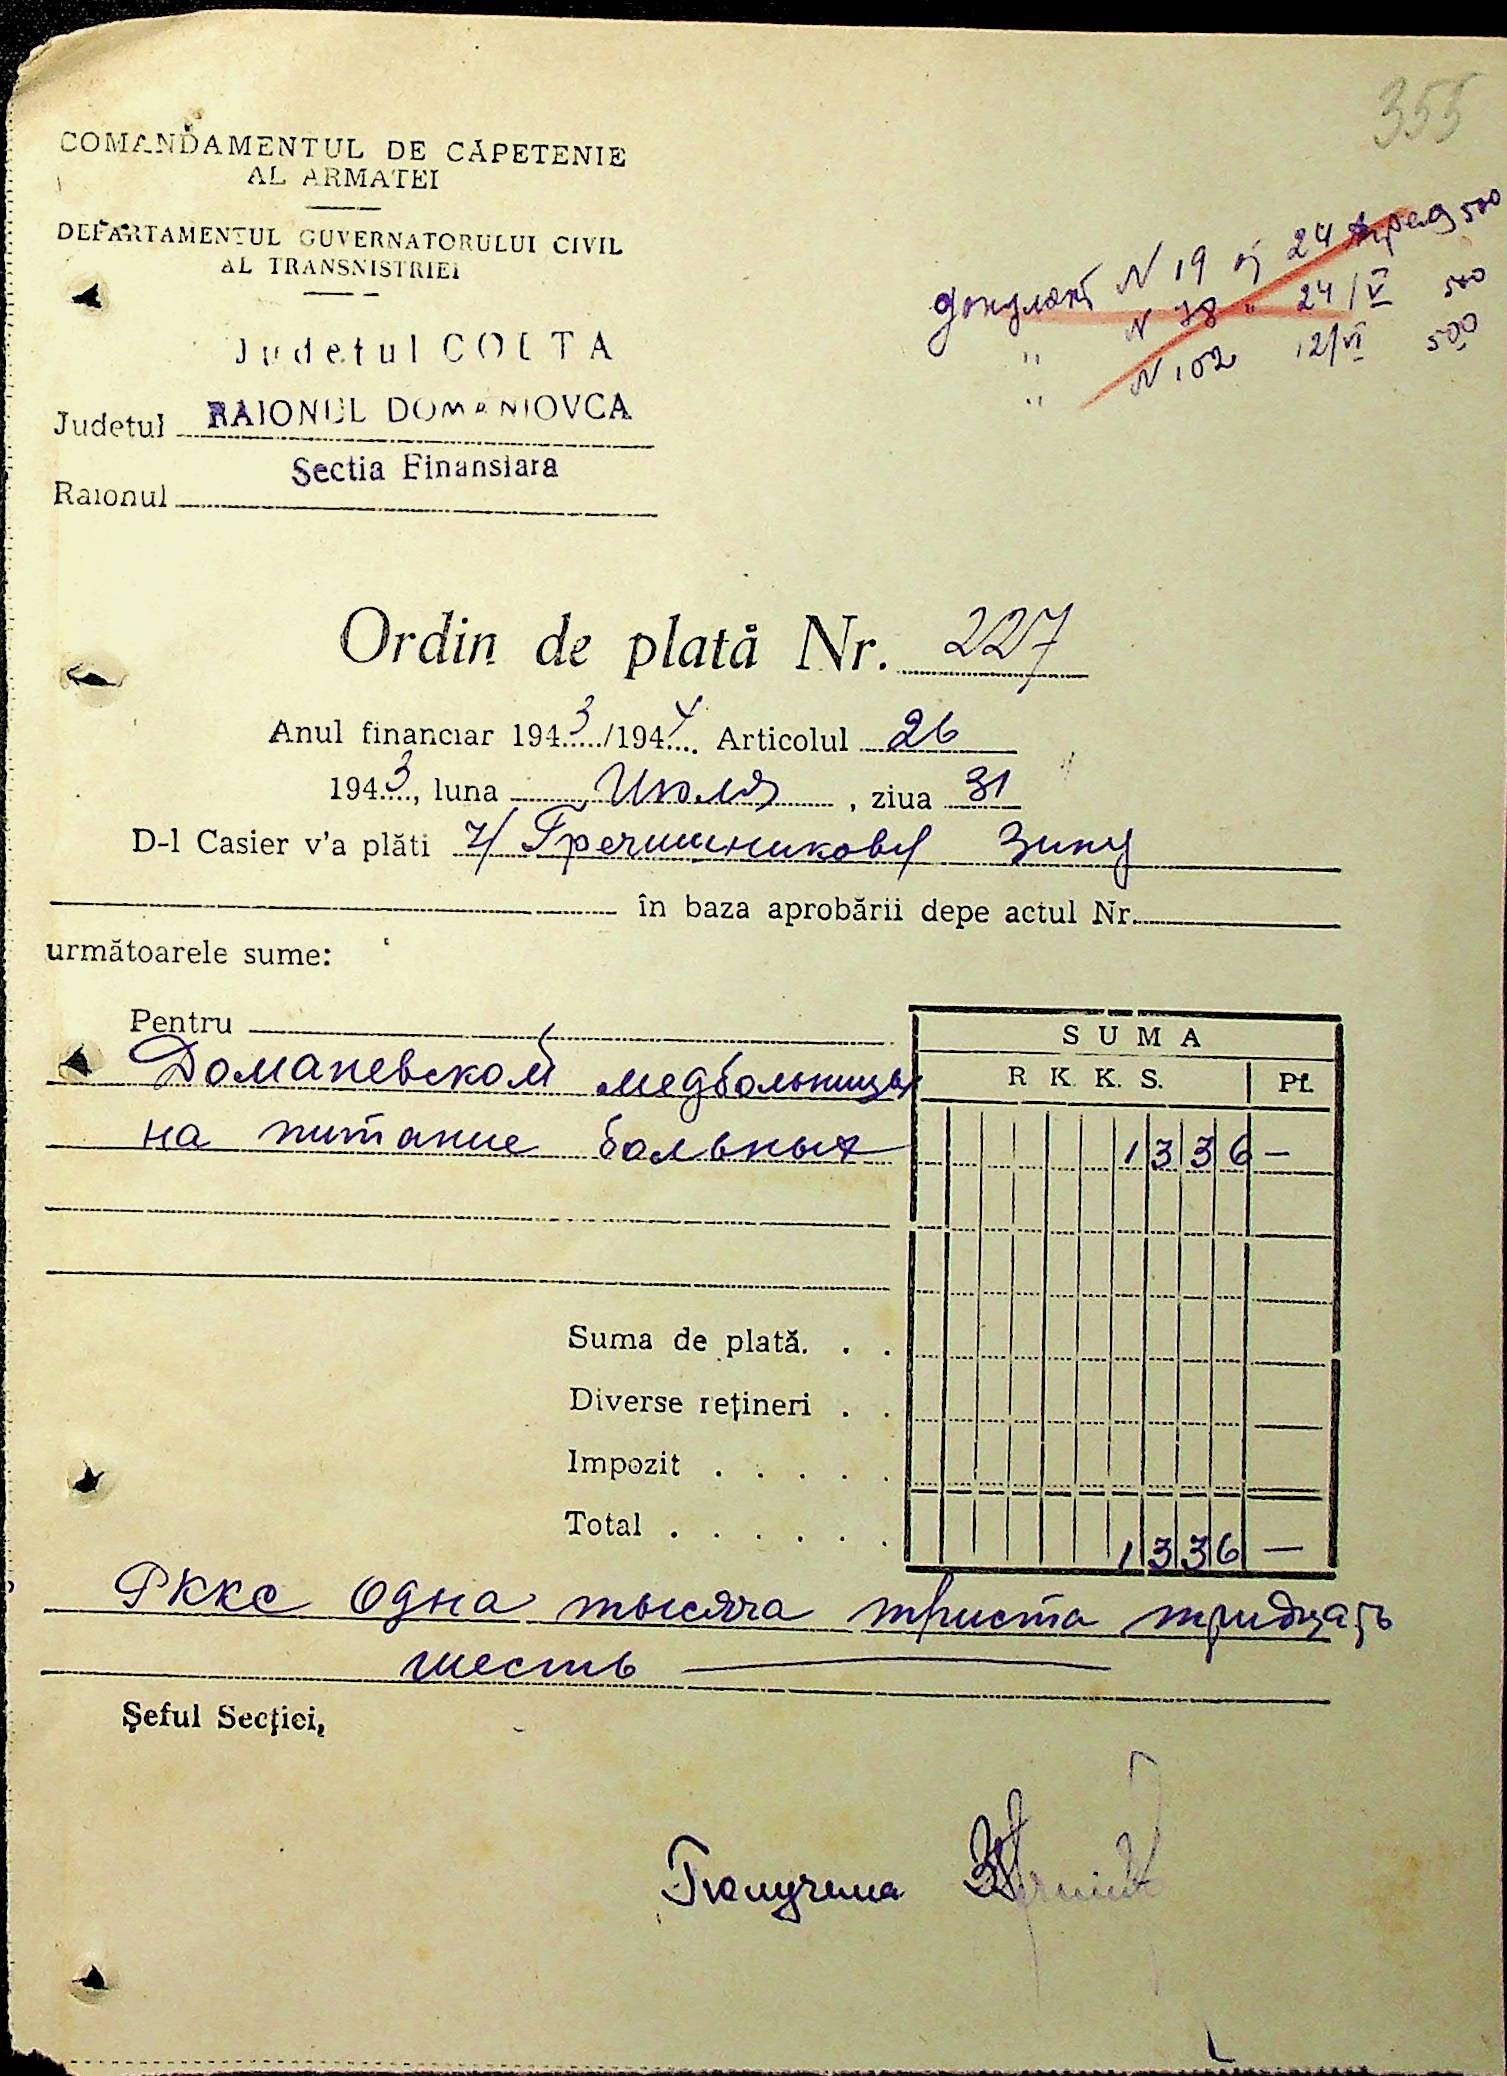 355
COMANDAMENTUL DE CĂPETENIE
AL ARMATEI
DEPARTAMENTUL GUVERNATORULUI CIVIL
AL TRANSNISTRIEI
документ N 19 24 500
" N 78 " 24/V 500
" N 102 12/VI 500
Judetul COLTA
Judetul RAIONUL DOMANIOVCA
Sectia Finansiara
Raionul
Ordin de plată Nr. 227
Anul financiar 1943/1944 Articolul 26
1943, luna Июля, ziua 31
D-l Casier v'a plăti ч/ Гречишникову Зину
în baza aprobării depe actul Nr.
următoarele sume:
Pentru
SUMA
Доманевской медбольницы
R K. K. S. Pf.
на питание больных 1336 —
Suma de plată. . .
Diverse rețineri . .
Impozit . . . . .
Total . . . . . . 1336 —
РККС Одна тысяча триста тридцать
шесть
Șeful Secției,
Получила